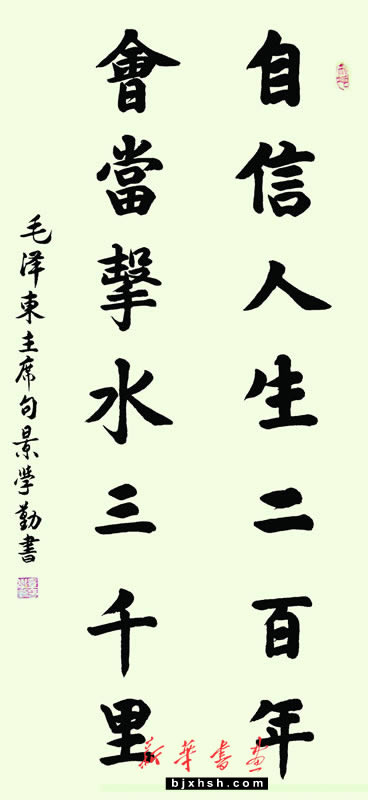 自信人生二百年
會當擊水三千里
毛泽東主席句景學勤書
新華書画
bjxhsh.com